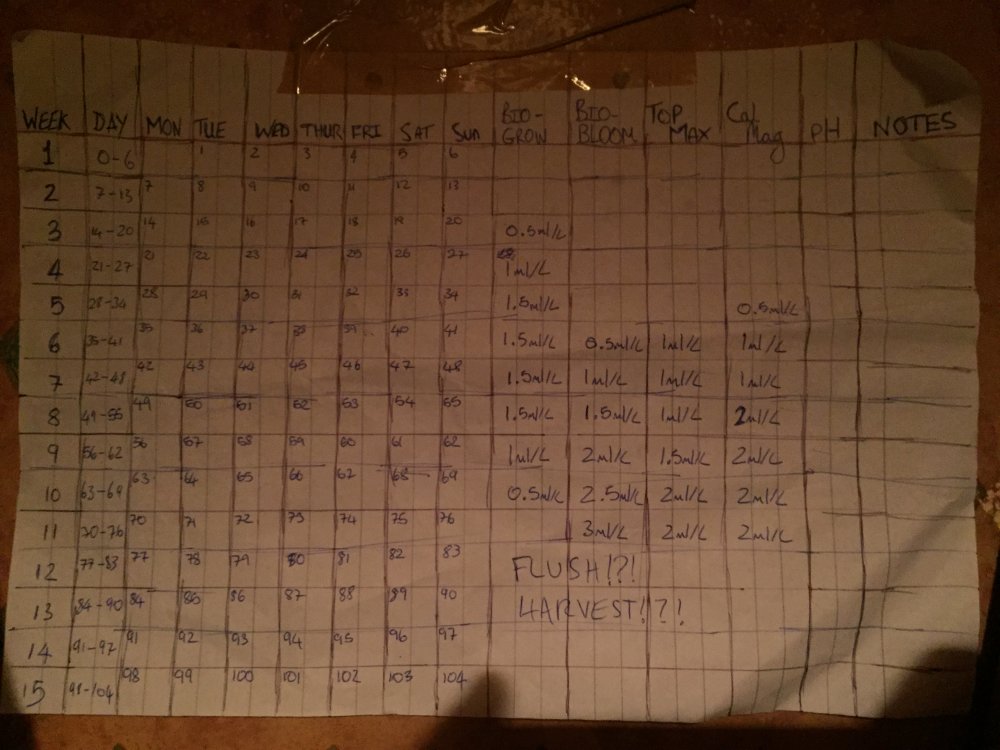 WEEK DAY MON TUE WED THUR FRI SAT SUN BIO-GROW BIO-BLOOM TOP MAX Cal Mag PH NOTES
1 0-6 1 2 3 4 5 6
2 7-13 7 8 9 10 11 12 13
3 14-20 14 15 16 17 18 19 20 0.5ml/L
4 21-27 21 22 23 24 25 26 27 1ml/L
5 28-34 28 29 30 31 32 33 34 1.5ml/L 0.5ml/L
6 35-41 35 36 37 38 39 40 41 1.5ml/L 0.5ml/L 1ml/L 1ml/L
7 42-48 42 43 44 45 46 47 48 1.5ml/L 1ml/L 1ml/L 1ml/L
8 49-55 49 50 51 52 53 54 55 1.5ml/L 1.5ml/L 1ml/L 2ml/L
9 56-62 56 57 58 59 60 61 62 1ml/L 2ml/L 1.5ml/L 2ml/L
10 63-69 63 64 65 66 67 68 69 0.5ml/L 2.5ml/L 2ml/L 2ml/L
11 70-76 70 71 72 73 74 75 76 3ml/L 2ml/L 2ml/L
12 77-83 77 78 79 80 81 82 83 FLUSH!?!
13 84-90 84 85 86 87 88 89 90 HARVEST!?!
14 91-97 91 92 93 94 95 96 97
15 98-104 98 99 100 101 102 103 104